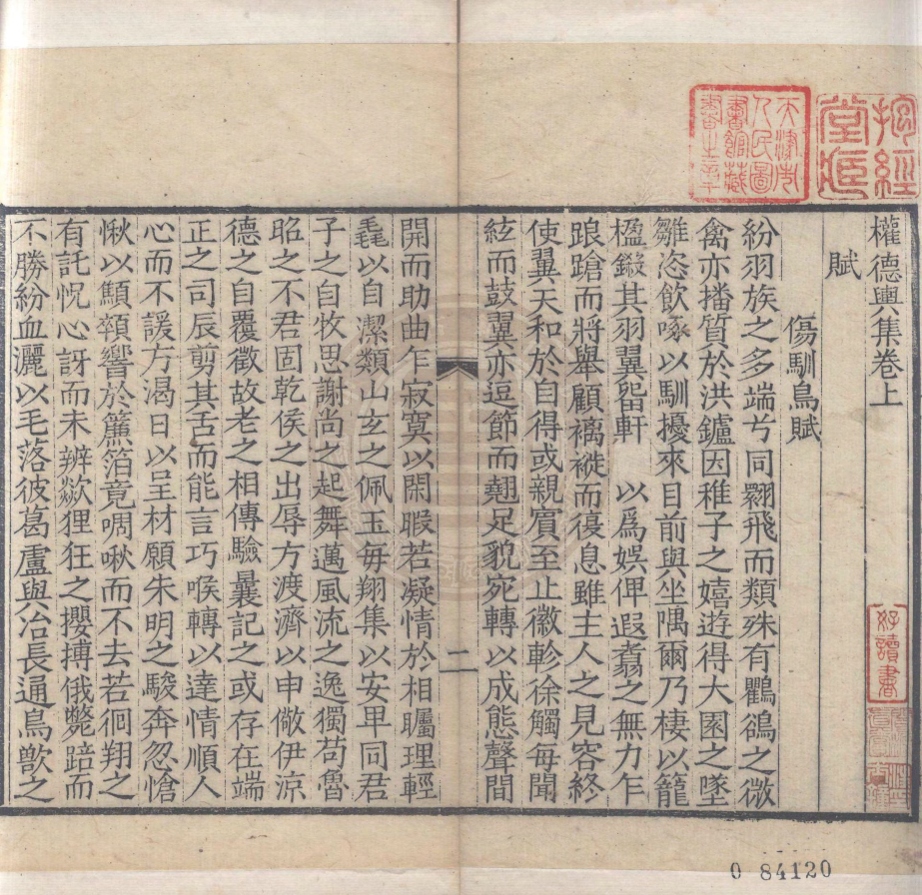 權德輿集卷上
賦
傷馴鳥賦
紛羽族之多端兮同翾飛而類殊有鸜鵒之微
禽亦播質於洪鑪因稚子之嬉遊得大園之墜
雛恣飲啄以馴擾來目前與坐隅爾乃棲以籠
楹鎩其羽翼留軒 以爲娯俾遐翥之無力乍
踉蹌而將舉顧褵褷而復息雖主人之見容終
使翼天和於自得或親賓至止徽軫徐觸每聞
絃而鼓翼亦逗節而翹足貌宛轉以成態聲間
二
開而助曲乍寂寞以閑暇若凝情於相矚理輕
毳以自潔類山玄之佩玉毎翔集以安甲同君
子之自牧思謝尚之起舞邁風流之逸獨苟魯
昭之不君固乾侯之出辱方渡濟以申儆伊涼
德之自覆徵故老之相傳驗曩記之或存在端
正之司辰剪其舌而能言巧喉轉以達情順人
心而不諼方渴日以呈材願朱明之駿奔忽愴
愀以顯顇響於簾箔竟啁啾而不去若徊翔之
有託怳心訝而未辨歘狸狂之攖搏俄斃踣而
不勝紛血灑以毛落彼葛盧與冶長通鳥獸之
天津市人民圖書館藏書之章
揅經堂
好讀書
0 84120